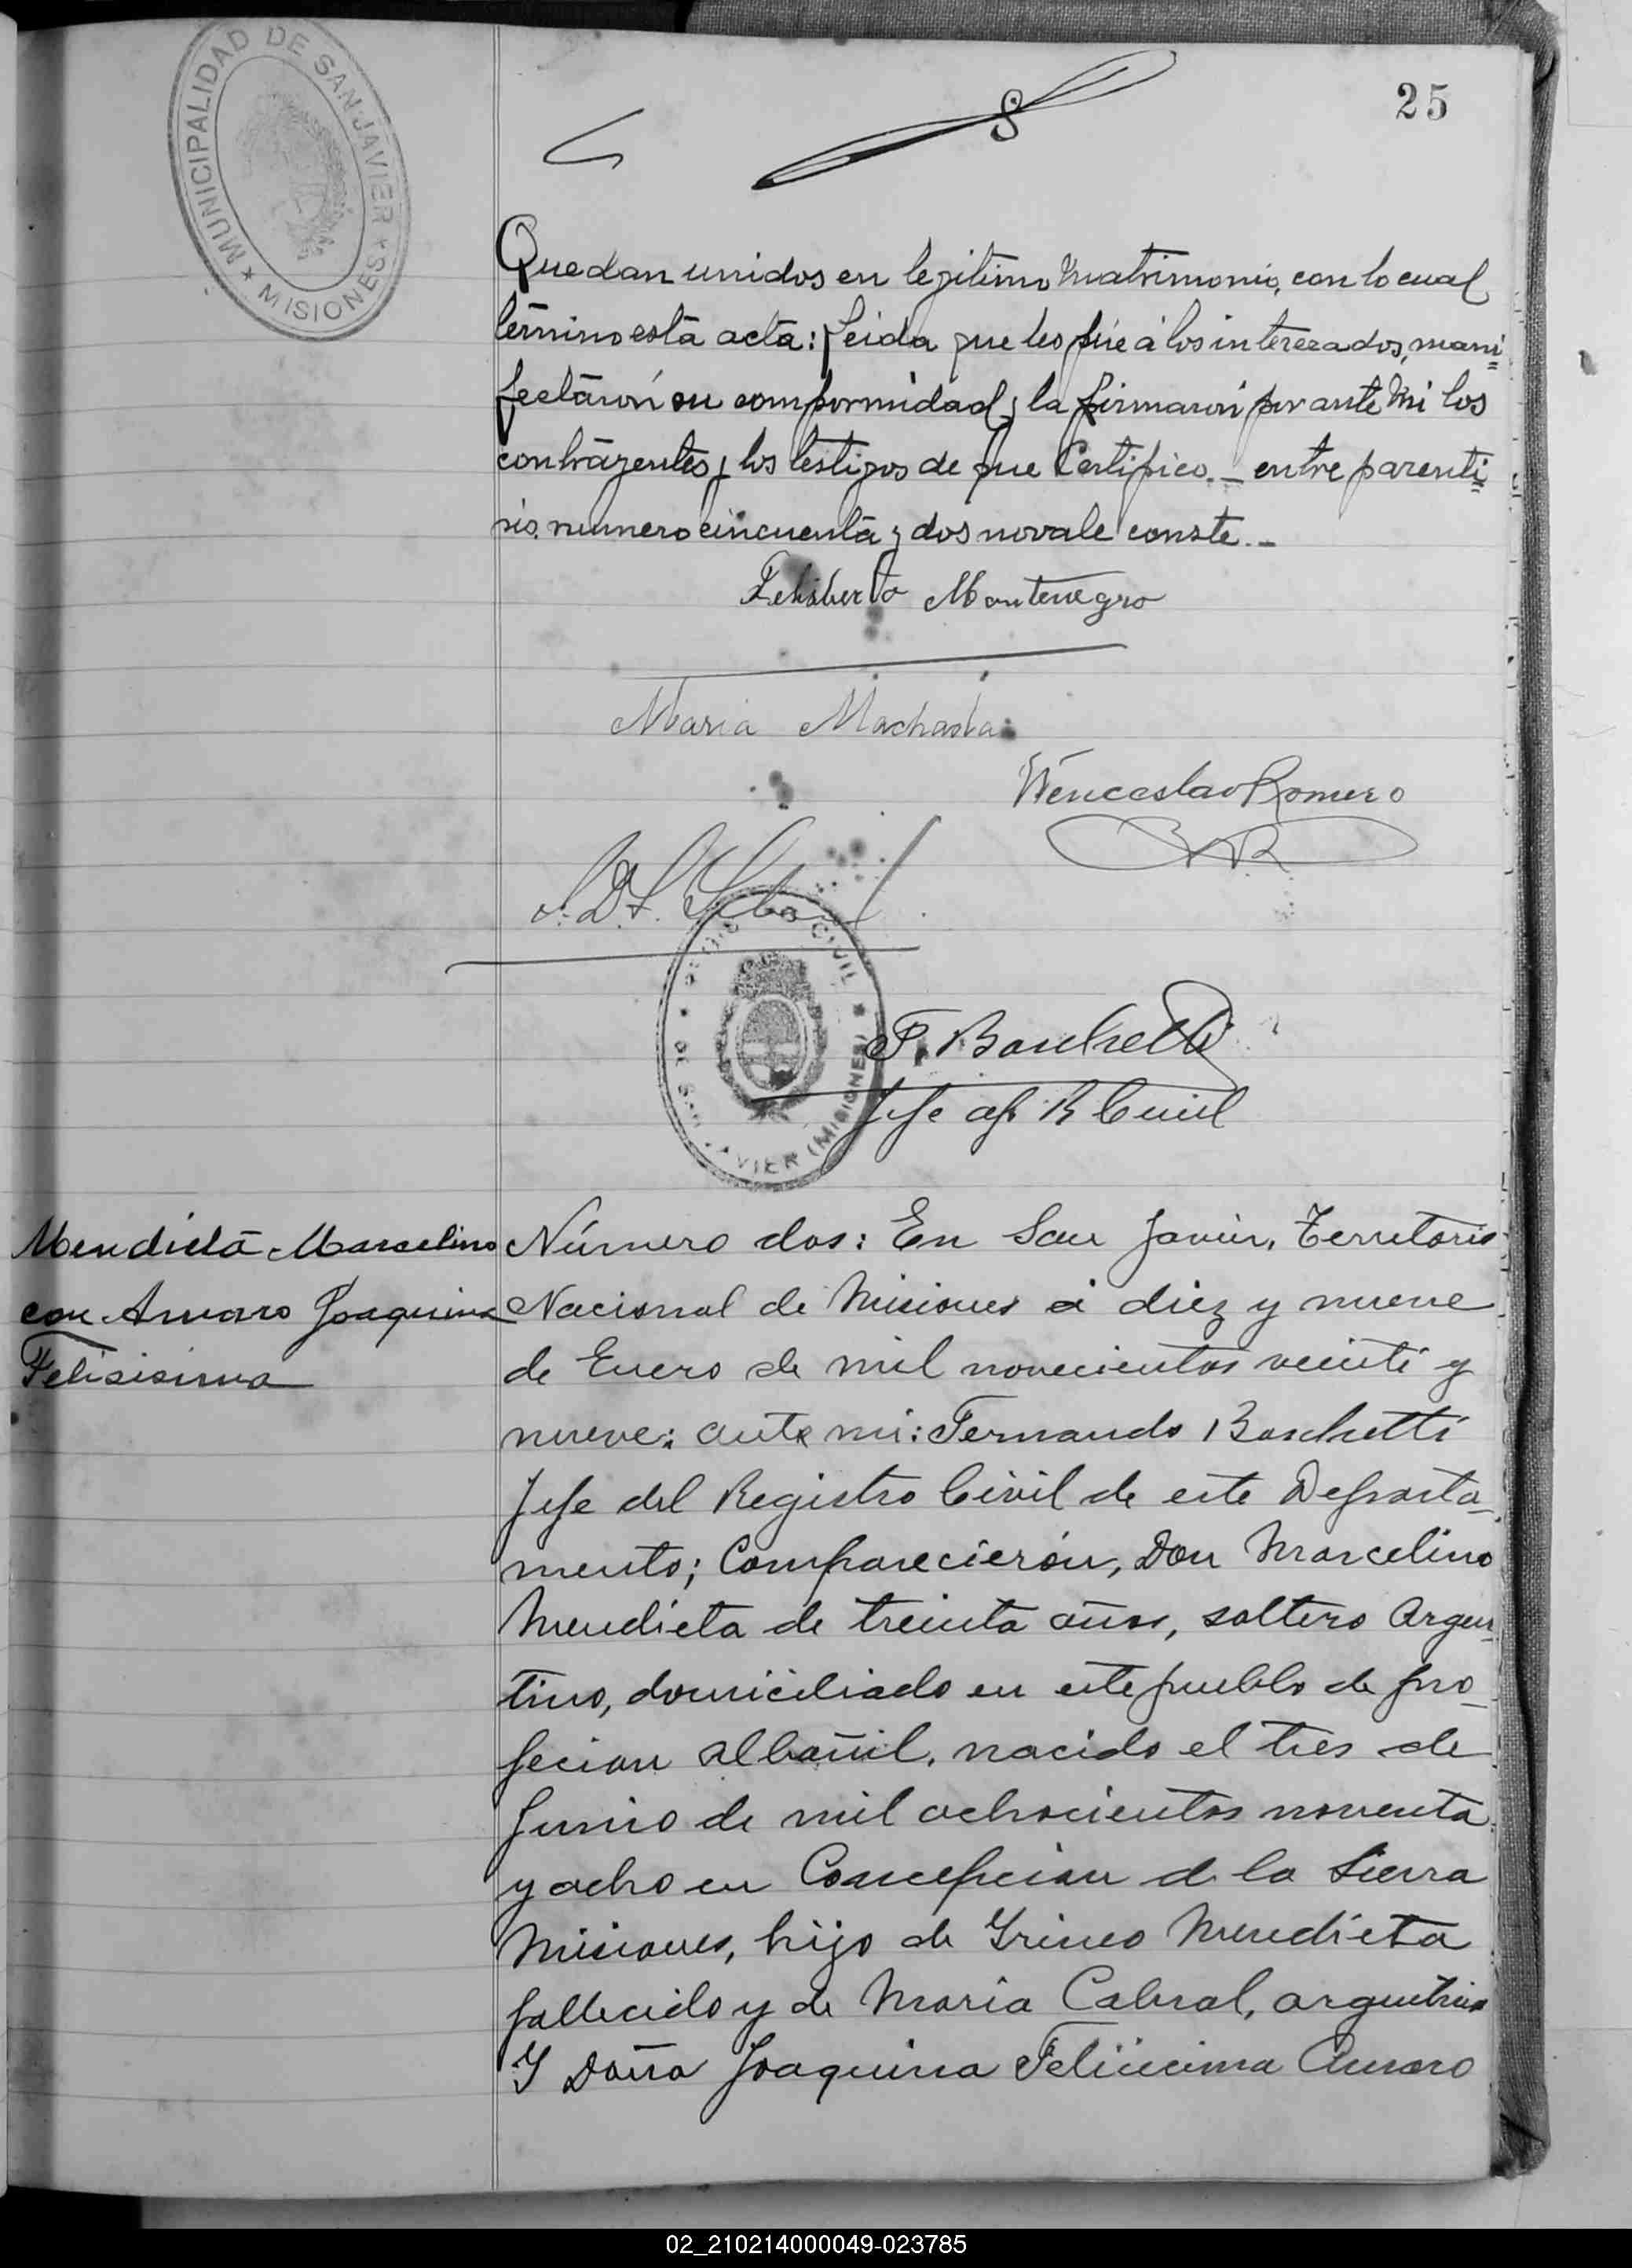 MUNICIPALIDAD DE SAN JAVIER
★ MISIONES ★
25
Quedan unidos en legitimo Matrimonio, con lo cual
términó está acta: Leida que les fúe á los interezados, mani=
festáron su comformidad y la firmaron por ante Mi los
contrayentes y los testigos de que Certifico._ entre parenti=
sis, numero cincuenta y dos no vale conste._
Feliberto Montenegro
Maria Machada
Wenceslao Romero
WR
REGISTRO CIVIL
DE SAN JAVIER (MISIONES)
F. Boschetti
Jefe of R Civil
Mendieta Marcelino
con Amaro Joaquina
Felisisima
Número dos: En San Javier, Territorio
Nacional de Misiones a diez y nueve
de Enero de mil novecientos veinti y
nueve: ante mi: Fernando Boschetti
Jefe del Registro Civil de este Departa-
mento; Comparecierón, Don Marcelino
Mendieta de treinta años, soltero Argen-
tino, domiciliado en este pueblo de pro-
fecion albañil, nacido el tres de
Junio de mil ochocientos noventa
y ocho en Concepcion de la Sierra
Misiones, hijo de Irineo Mendieta
fallecido y de Maria Cabral, argentina
Y Doña Joaquina Feliicima Amaro
02_210214000049-023785